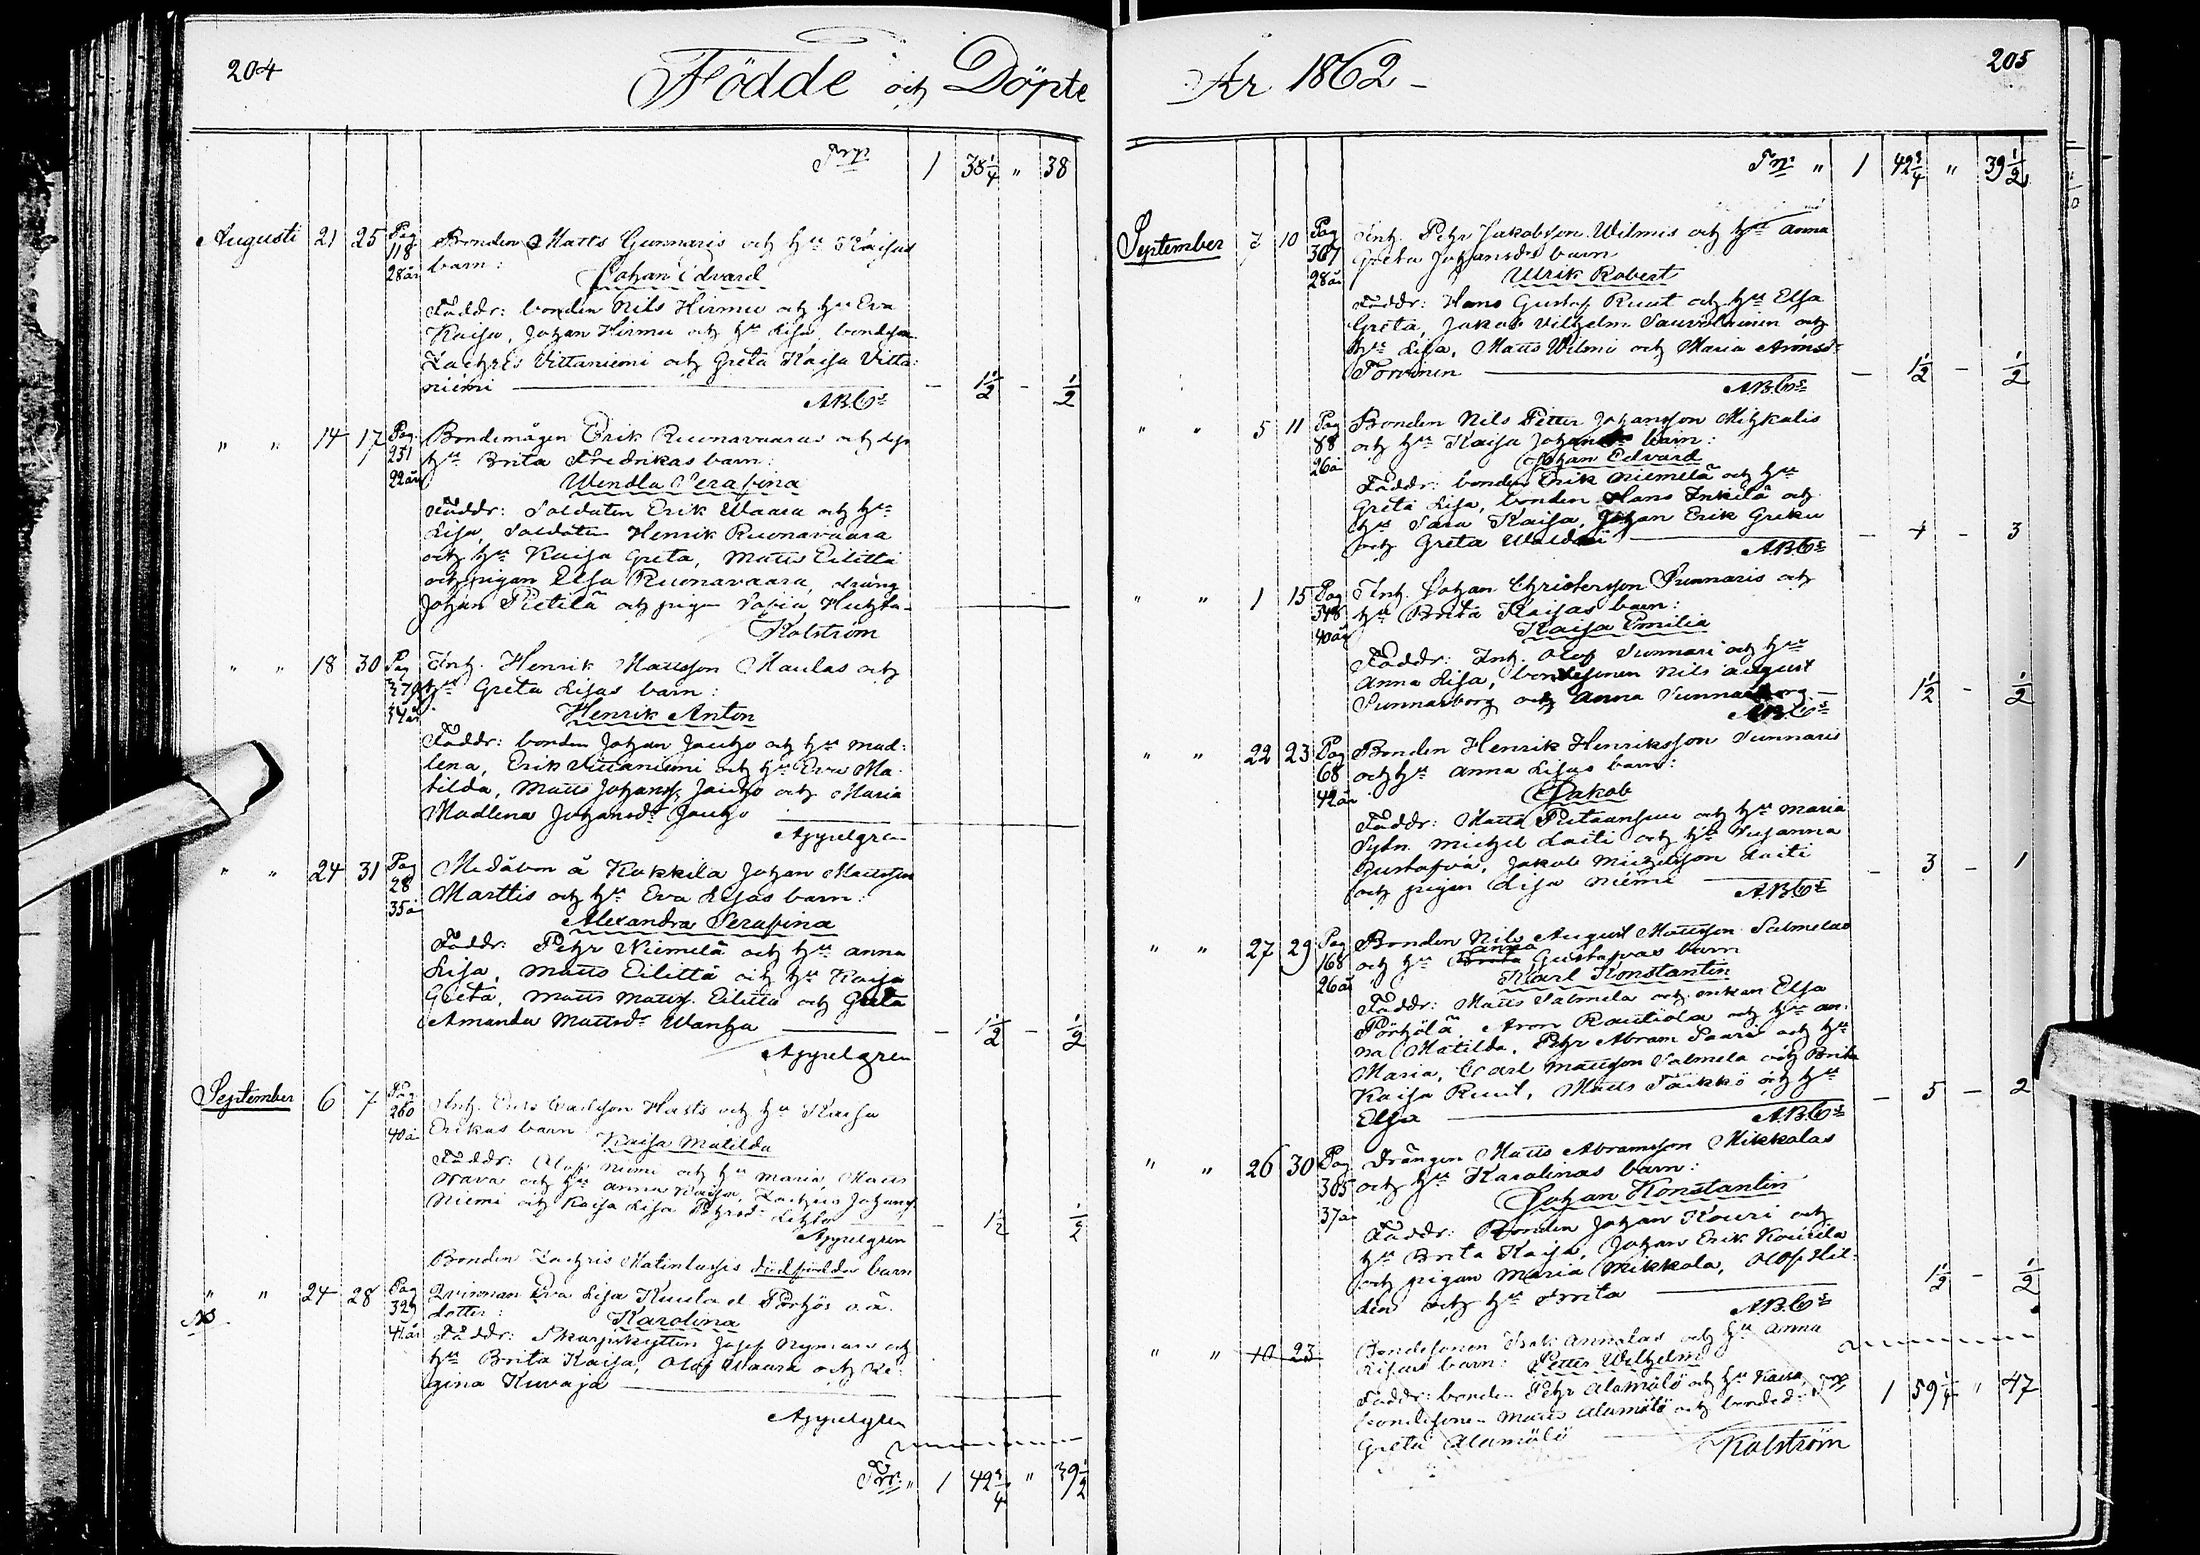 204
Födde och Döpte
Trp. 1 38 1/4 " 38
Augusti 21 25 Pag 118 28 år Bonden Matts Gunnaris och hu Kaisas
barn:
Johan Edvard
Faddr: bonden Nils Hirmu och hu Eva
Kaisa, Johan Hirmu och hu Lisa, bondeson
Zachris Vittaniemi och Greta Kaisa Vitta-
niemi — 1 1/2 — 1/2
" " 14 17 Pag 251 22 år Bondemågen Erik Ruonavaaras och dess
hu Brita Fredrikas barn:
Wendla Serafina
Faddr: Soldaten Erik Waara och hu
Lisa, Soldaten Henrik Ruonavaara
och hu Kaisa Greta, Matts Eilitti
och pigan Elsa Ruonavaara, dräng
Johan Pietilä och pigan Sofia
Kolström
" " 18 30 Pag 34 år Inh. Henrik Mattsson Maulas och
hu Greta Lisas barn:
Henrik Anton
Faddr: bonden Johan Jauho och hu Mad-
lena, Erik Vittaniemi och hu Eva Ma-
tilda, Matts Johanss. Jauho och Maria
Madlena Johansdr Jauho
Appelgren
" " 24 31 Pag 28 35 å Medåbon å Kokkila Johan Mattsson
Marttis och hu Eva Lisas barn:
Alexandra Serafina
Faddr: Pehr Niemelä och hu Anna
Lisa, Matts Eilittä och hu Kaisa
Greta, Matts Matss. Eilitta och Greta
Amanda Mattsdr Wanha — 1 1/2 — 1/2
Appelgren
September 6 7 Pag 260 40 å Inh. Carlsson och hu Kaisa
Erikas barn
Kaisa Matilda
Faddr: Olof Niemi och hu Maria, Matts
och hu Anna Kaisa, Zachris Johanss.
Niemi och Kaisa Lisa Pehrsdr — 1 1/2 1/2
Appelgren
Bonden Zachris Matinlassis dödfödda barn
" " 24 28 Pag 329 41 år Qvinnan Eva Lisa Kuula el Pörhös o.ä.
NB dotter: Karolina
Faddr: Skarpskytten Josef Nyman och
hu Brita Kaisa, Olof Waara och Re-
gina Kuvaja
Appelgren
Trp. " 1 42 3/4 " 39 1/2
205
År 1862 –
Trp. " 1 42 3/4 " 39 1/2
September 7 10 Pag 367 28 å Inh. Pehr Jakobsson Wilmis och hu Anna
Greta Johansdrs barn
Ulrik Robert
Faddr: Hans Gustaf Ruut och hu Elsa
Greta, Jakob Vilhelm Sauvolainen och
hu Lisa, Matts Wilmi och Maria Aronsdr
Torvinen — 1 1/2 — 1/2
" " 5 11 Pag 88 26 å Bonden Nils Petter Johansson Mihkalis
och hu Kaisa barn:
Johan Edvard
Faddr: bonden Erik Niemelä och hu
Greta Lisa, bonden Hans Inkilä och
hu Sara Kaisa, Johan Erik Greku
och Greta — 4 — 3
" " 1 15 Pag 348 40 år Inh. Johan Christersson Sunnaris och
hu Brita Kaisas barn:
Kaisa Emilia
Faddr: Inh. Olof Sunnari och hu
Anna Lisa, bondesonen Nils August
Sunnarborg och Anna Sunnarborg — 1 1/2 — 1/2
" " 22 23 Pag 68 42 å Bonden Henrik Henriksson Sunnaris
och hu Anna Lisas barn:
Jakob
Faddr: Matts och hu Maria
Sytn. Michel Laiti och hu Susanna
Gustafva, Jakob Michelsson Laiti
och pigan Lisa Niemi — 3 — 1
" " 27 29 Pag 168 26 å Bonden Nils August Mattsson Salmelas
och hu Anna Gustafvas barn
Karl Konstantin
Faddr: Matts Salmela och enkan Elsa
Pörhölä, Aron Rautiola och hu An-
na Matilda, Pehr Abram Saari och hu
Maria, Carl Mattsson Salmela och Brita
Kaisa Ruut, Matts Täikkö och hu
Elsa — 5 — 2
" " 26 30 Pag 365 37 å Drängen Matts Abramsson Mikkolas
och hu Karolinas barn:
Johan Konstantin
Faddr: Bonden Johan Kouri och
hu Brita Kaisa, Johan Erik
och pigan Maria Mikkola, Olof Hel-
den och hu Brita — 1 1/2 — 1/2
" " 10 23 Bondesonen Isak Annalas och hu Anna
Lisas barn: Petter Wilhelm
Faddr: bonden Pehr Alamölö och hu Kaisa, Trp 1 59 1/4 " 47
bondesonen Matts Alamölö och bondedr
Greta Alamölö
Kolström